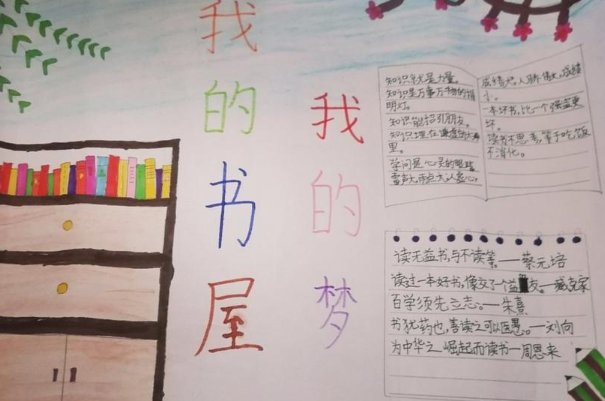 我的书屋
我的梦
知识就是力量。
知识是万事万物的指
明灯。
知识能招引朋友。
知识埋在谦虚的大海
里。
学问是心灵的眼睛
雷声大雨点大,人
成绩
小。
一本坏书,比一个强盗更
坏。
读书不思考,等于吃饭
不消化。
读无益书,与不读等。——蔡元培
读过一本好书,像交了个益友。—臧克家
百学须先立志。——朱熹
书犹药也,善读之可以医愚。—刘向
为中华之崛起而读书—周恩来